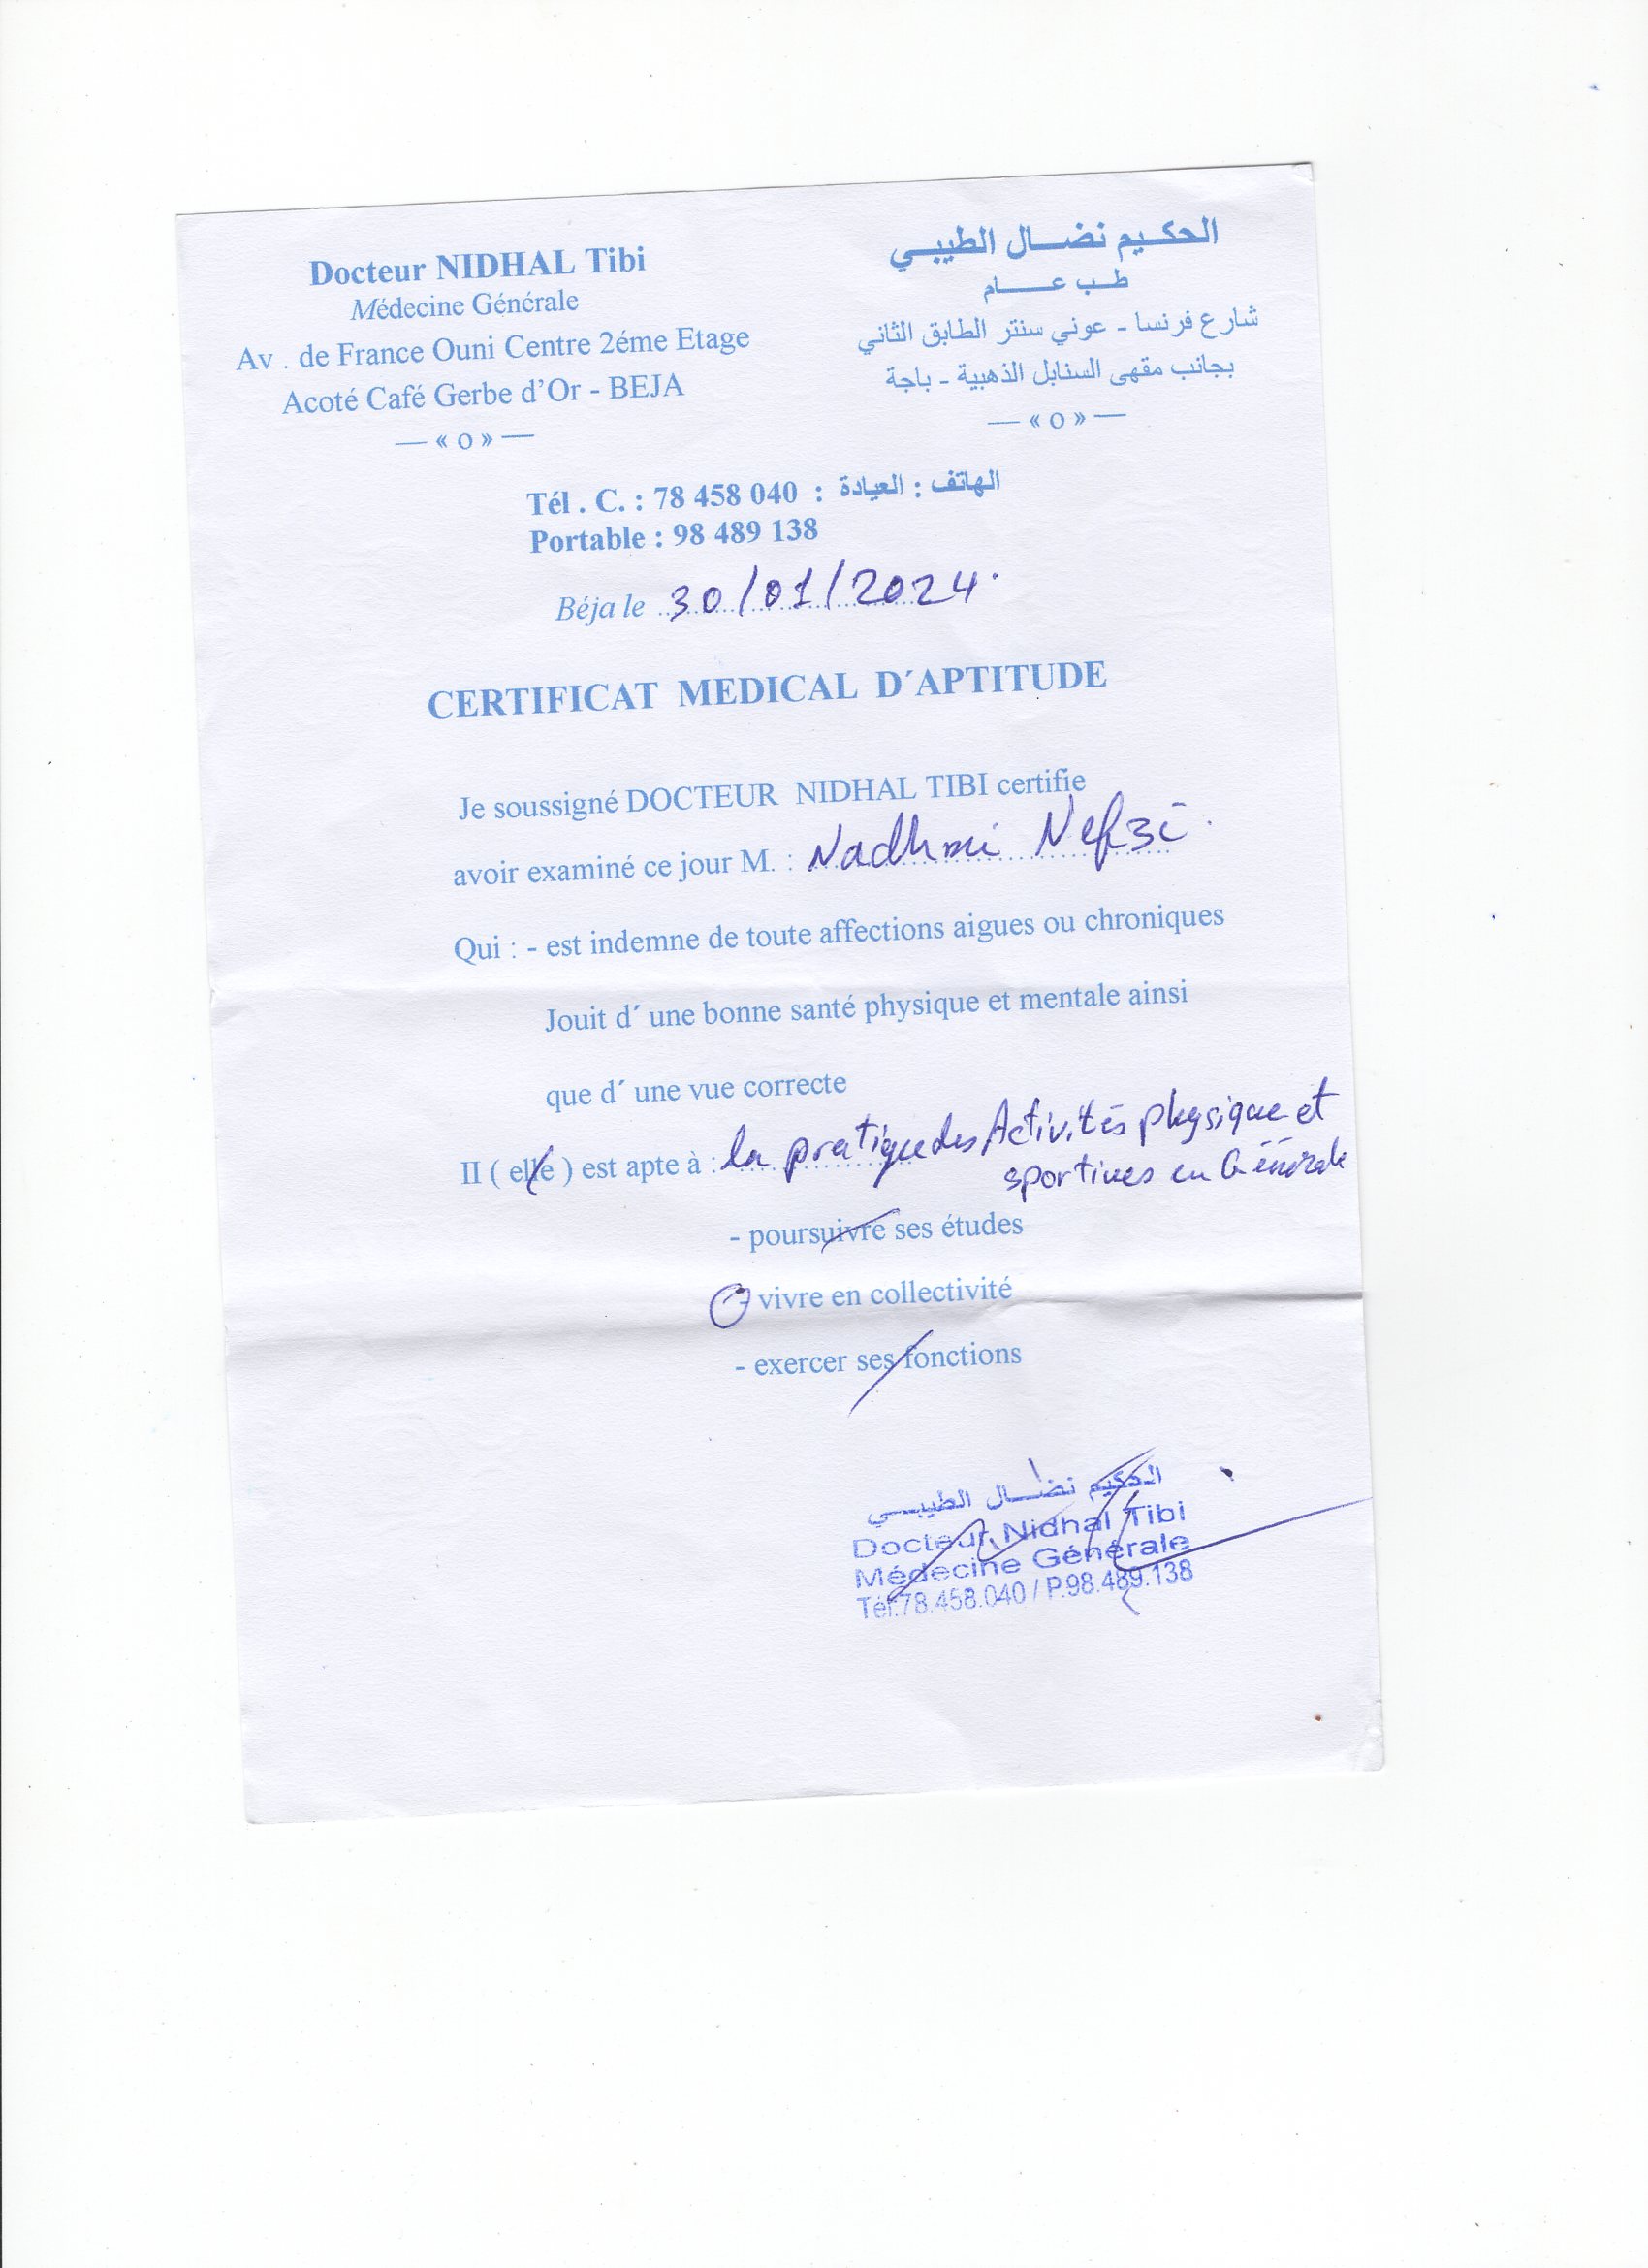 Docteur NIDHAL Tibi
Médecine Générale
Av . de France Ouni Centre 2éme Etage
Acoté Café Gerbe d’Or - BEJA
— « o » —
الحكـيم نضـــال الطيبـي
طـب عـــــام
شارع فرنسا - عوني سنتر الطابق الثاني
بجانب مقهى السنابل الذهبية - باجة
— « o » —
Tél . C. : 78 458 040 : الهاتف : العيادة
Portable : 98 489 138
Béja le 30/01/2024.
CERTIFICAT MEDICAL D´APTITUDE
Je soussigné DOCTEUR NIDHAL TIBI certifie
avoir examiné ce jour M. : Nadhmi Nefzi.
Qui : - est indemne de toute affections aigues ou chroniques
Jouit d´ une bonne santé physique et mentale ainsi
que d´ une vue correcte
II ( elle ) est apte à : la pratique des Activités physique et
sportives en Générale
- poursuivre ses études
- vivre en collectivité
- exercer ses fonctions
الحكيم نضـــال الطيبـــي
Docteur Nidhal Tibi
Médecine Générale
Tél:78.458.040 / P.98.489.138